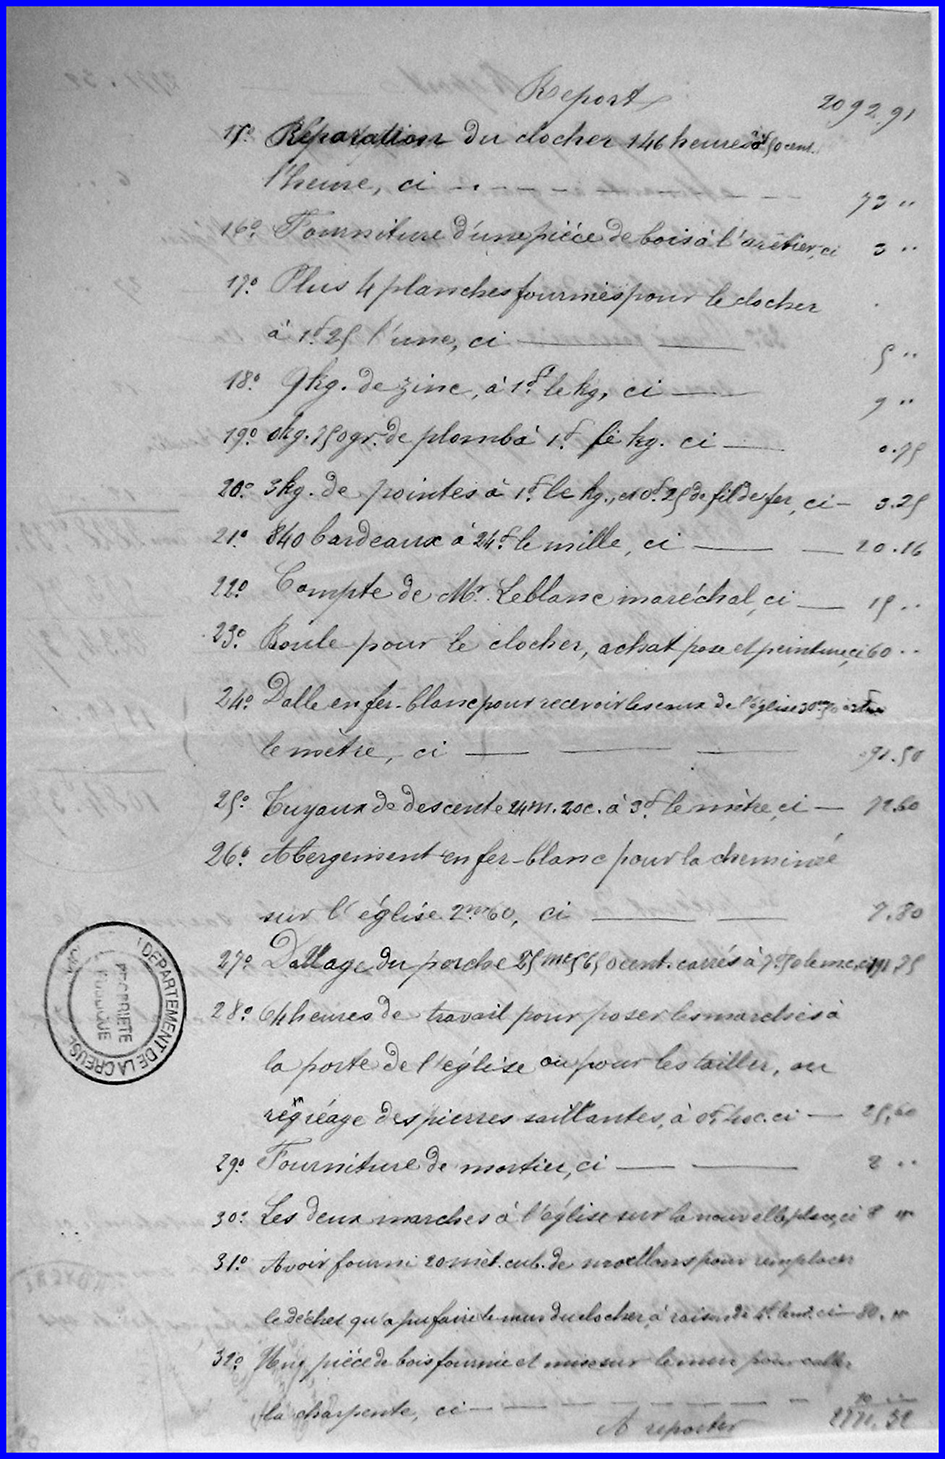 Report 2092.91
15º Réparation du clocher 146 heures à 50 cent.
l'heure, ci 73 "
16º Fourniture d'une pièce de bois à l'arêtier, ci 3 "
17º Plus 4 planches fournies pour le clocher
à 1f.25 l'une, ci 5 "
18º 9 kg. de zinc, à 1f le kg, ci 9 "
19º 0kg.750gr. de plomb à 1f le kg. ci 0.75
20º 3kg. de pointes à 1f le kg., et 0f.25 de fil de fer, ci 3.25
21º 840 bardeaux à 24f le mille, ci 20.16
22º Compte de Mr. Leblanc maréchal, ci 15 "
23º Boule pour le clocher, achat pose et peinture, ci 60 "
24º Dalle en fer-blanc pour recevoir les eaux de l'église 30m,50 à
le mètre, ci 91.50
25º Tuyaux de descente 24m.20c. à 3f le mètre, ci 72.60
26º Abergement en fer-blanc pour la cheminée
sur l'église 2m60, ci 7.80
27º Dallage du porche 25 carrés à 7f.50 le
28º 64 heures de travail pour poser les marches à
la porte de l'église ou pour les tailler, ou
régréage des pierres saillantes, à 0f.40c. ci 25,60
29º Fourniture de mortier, ci 2 "
30º Les deux marches à l'église sur la nouvelle place, ci 8 "
31º Avoir fourni 20 mèt. cub. de moellons pour remplacer
le déchet qu'a pu faire le mur du clocher, à raison de 4f l'un, ci 80. "
32º Une pièce de bois fournie et mise sur le mur pour caller
la charpente, ci 10 "
A reporter
DEPARTEMENT DE LA CREUSE
PROPRIETE
PUBLIQUE